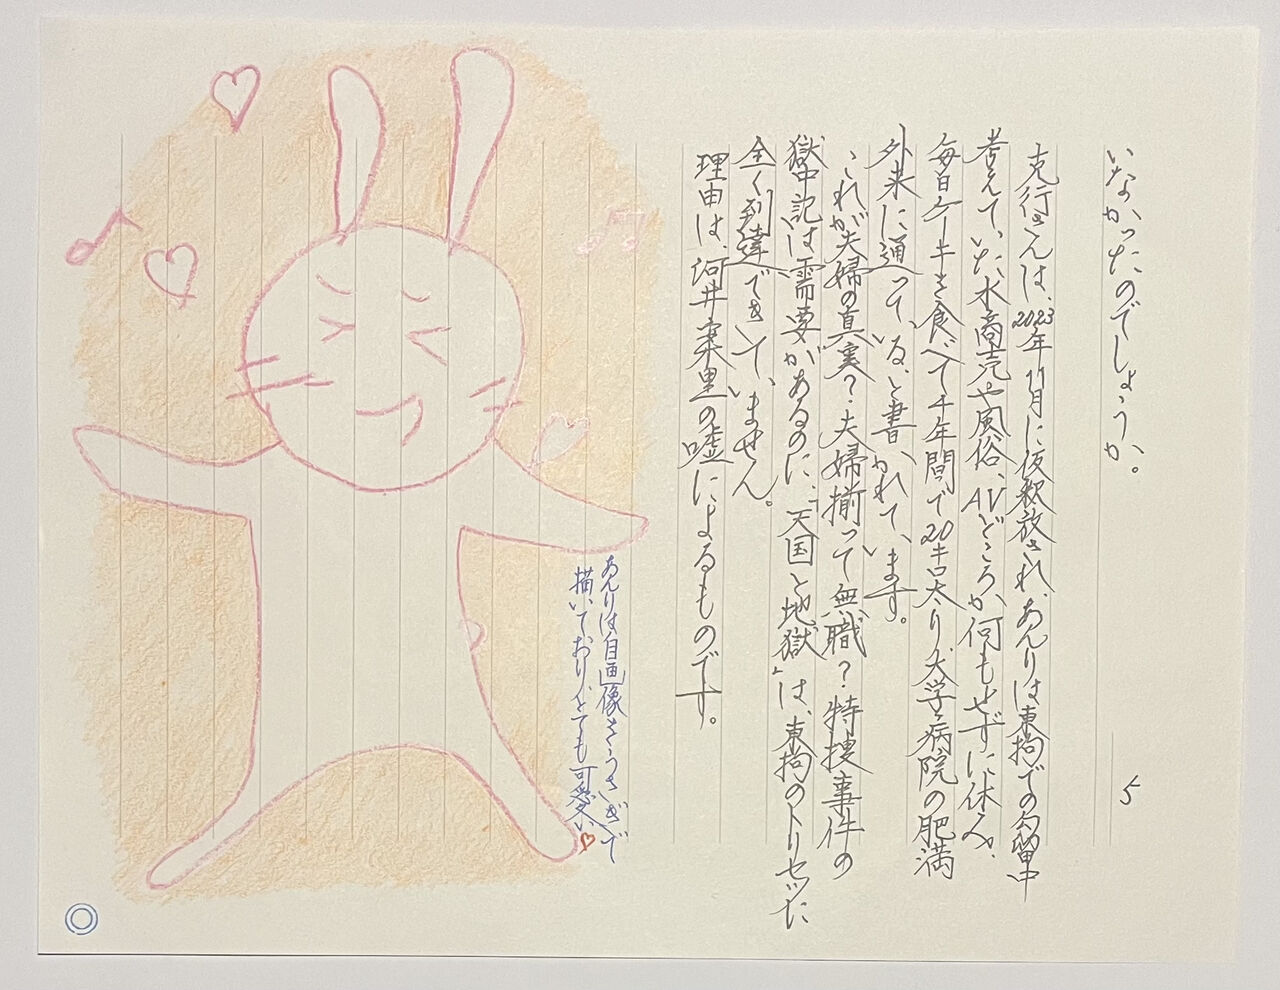 いなかったのでしょうか。
5
克行さんは、2023年11月に仮釈放され、あんりは東拘での勾留中
考えていた水商売や風俗、AVどころか何もせずに休み、
毎日ケーキを食べて4年間で20キロ太り大学病院の肥満
外来に通っている、と書かれています。
これが夫婦の真実?夫婦揃って無職?特捜事件の
獄中記は需要があるのに、「天国と地獄」は、東拘のトリセツに
全く到達できていません。
理由は、河井案里の嘘によるものです。
あんりは自画像をうさぎで
描いており、とても可愛い♡